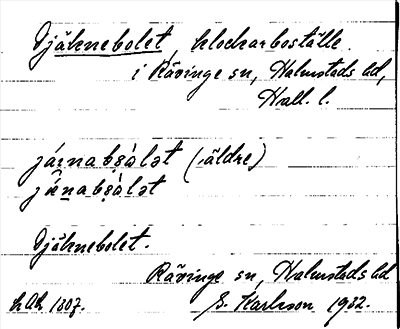 Djäknebolet, klockarboställe.
i Rävinge sn, Halmstads hd,
Hall. l.
jä́ꞃnabò̥lət (äldre)
jä́ꞃnabò̥lət
Djäknebolet.
Rävinge sn, Halmstads hd
E. Karlsson 1932.